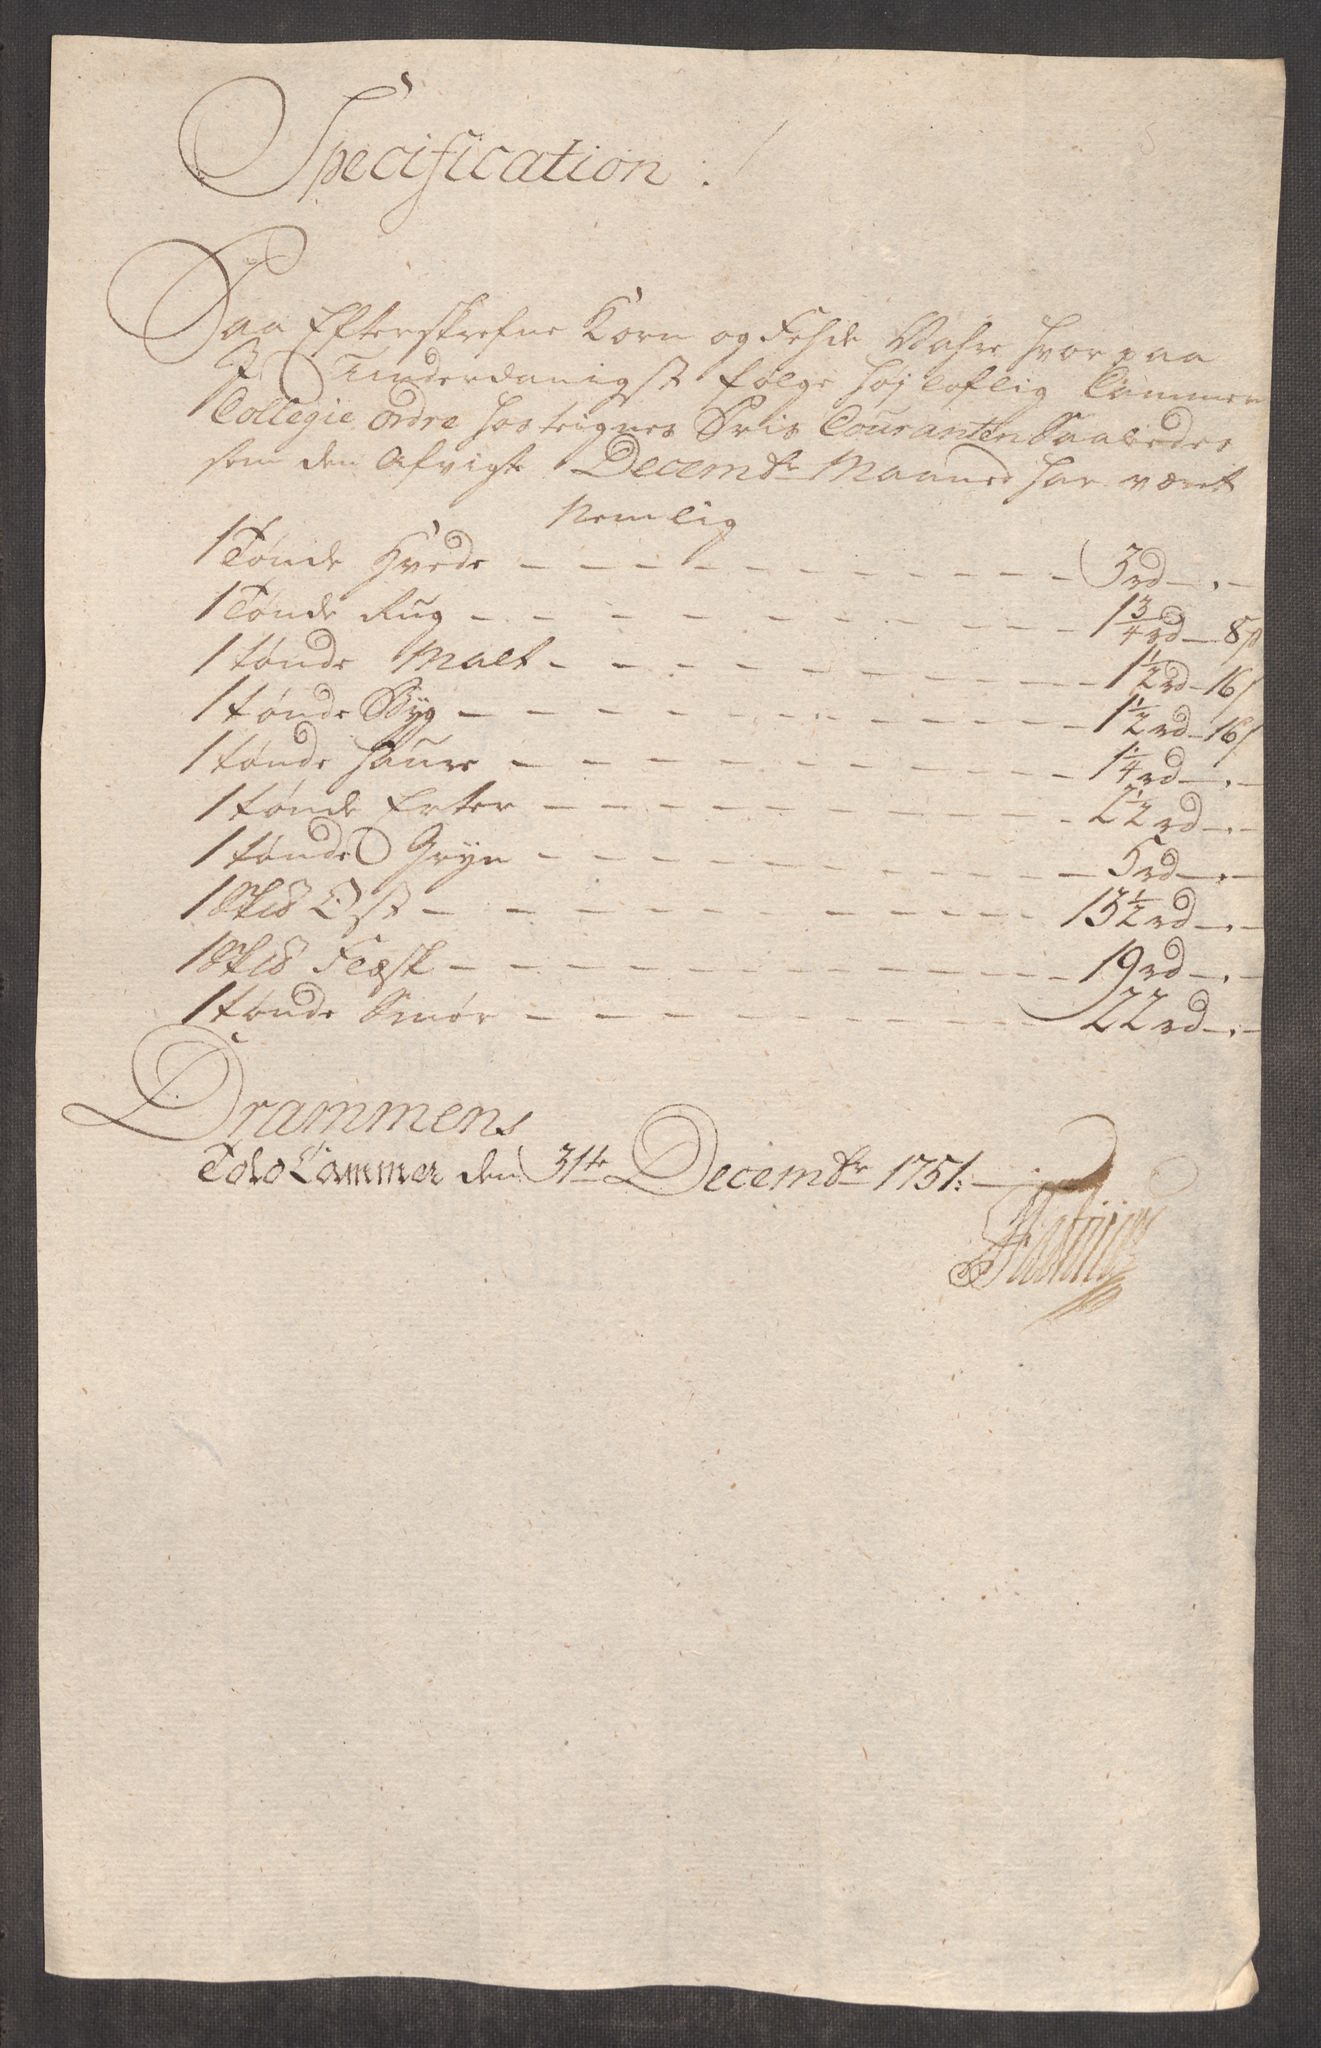 Specification :
Paa Efterskrefne Korn og Fehde Vahre hvor paa
I Underdanigst følge høj loflig Cammer
Collegie ordre hosteignes Pris Couranten Saaledes
som den Afvigte Decembr Maaned har været
Nemlig
1 Tønde Hvede - - - - - - - - - 3 rd - . -
1 Tønde Rug - - - - - - - - - 1 3/4 rd - 8 s
1 tønde Malt - - - - - - - - - 1 1/2 rd - 16 s
1 tønde Byg - - - - - - - - - 1 1/2 rd - 16 s
1 tønde haure - - - - - - - - - 1 1/4 rd - . -
1 tønde Erter - - - - - - - - - 2 1/2 rd - . -
1 tønde Gryn - - - - - - - - - 5 rd - . -
1 Sk℔ Ost - - - - - - - - - 13 1/2 rd - . -
1 Sk℔ Flæsk - - - - - - - - - 19 rd - . -
1 tønde Smør - - - - - - - - - 22 rd - . -
Drammens
Told Cammer den 31te Decembr 1751. -